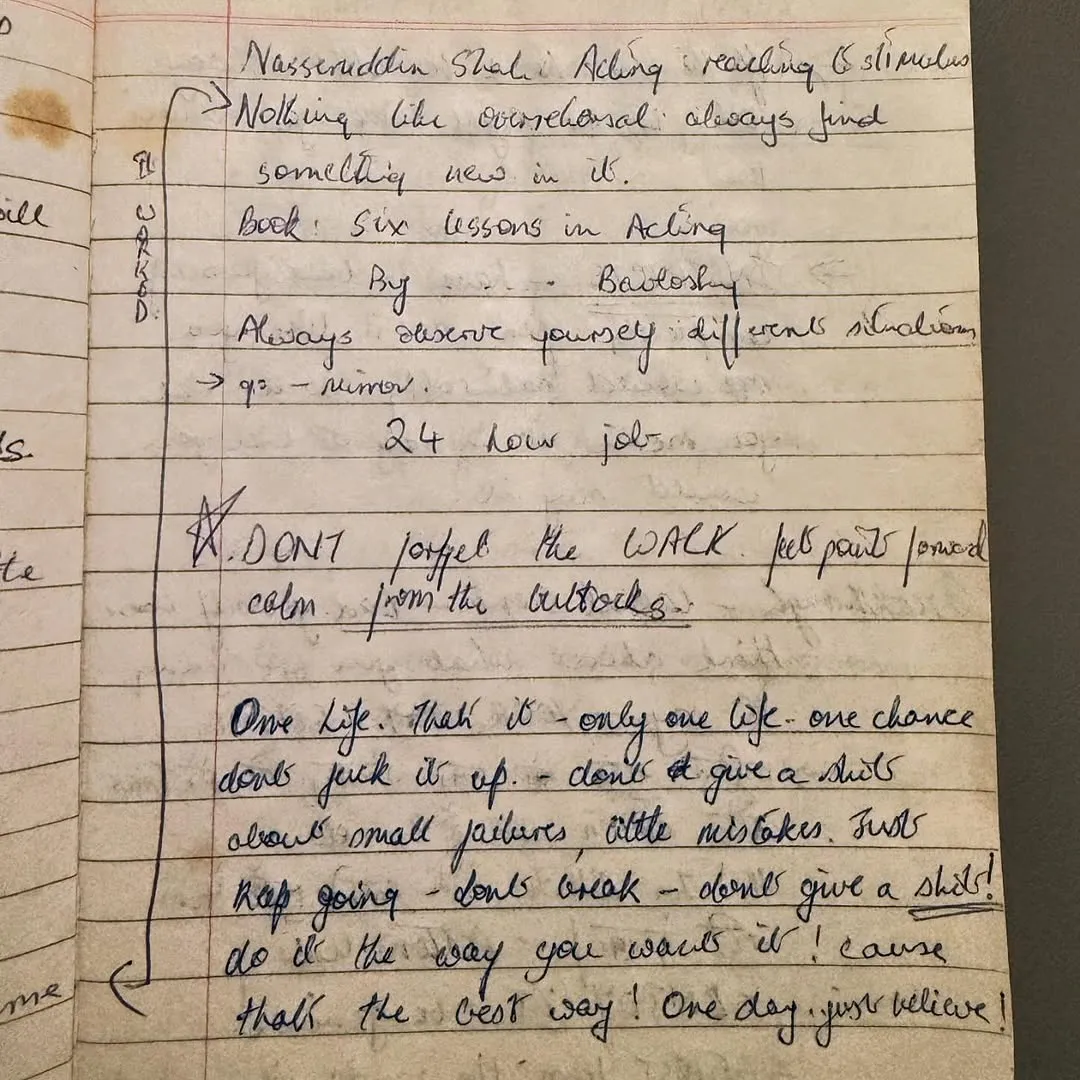 Nasseruddin Shah : Acting : reacting to stimulus
Nothing like overrehersal : always find
something new in it.
Book : Six lessons in Acting
By Bavloshy
Always observe yourself different situations
→ - mirror.
24 hour job
DONT forget the WALK. feet point forward
calm from the buttocks.
One Life. That's it - only one life - one chance
dont fuck it up. - dont give a shit
about small failures, little mistakes. Just
keep going - dont break - dont give a shit!
do it the way you want it! cause
that's the best way! One day. just believe!
IT WORKED.
ill
s.
te
me